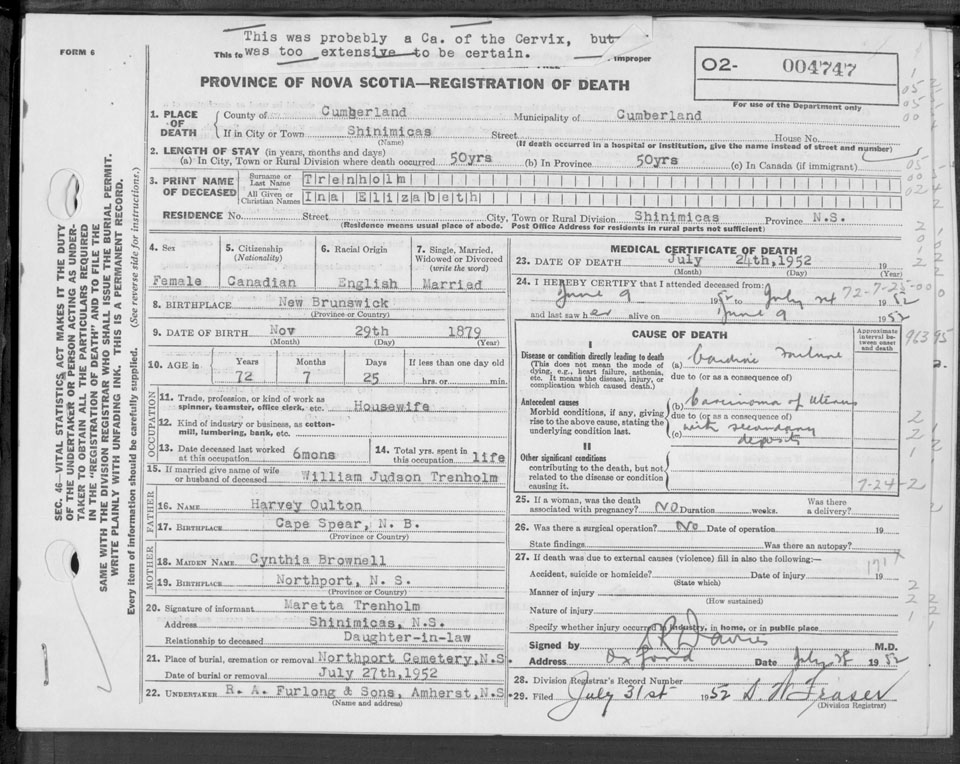 This was probably a Ca. of the Cervix, but
was too extensive to be certain.
FORM 6
This fo
improper
O2- 004747
For use of the Department only
PROVINCE OF NOVA SCOTIA—REGISTRATION OF DEATH
1. PLACE OF DEATH
County of Cumberland Municipality of Cumberland
If in City or Town Shinimicas Street House No.
(Name) (If death occurred in a hospital or institution, give the name instead of street and number)
2. LENGTH OF STAY (in years, months and days)
(a) In City, Town or Rural Division where death occurred 50yrs (b) In Province 50yrs (c) In Canada (if immigrant)
3. PRINT NAME OF DECEASED
Surname or Last Name Trenholm
All Given or Christian Names Ina Elizabeth
RESIDENCE No. Street City, Town or Rural Division Shinimicas Province N.S.
(Residence means usual place of abode. Post Office Address for residents in rural parts not sufficient)
4. Sex Female
5. Citizenship (Nationality) Canadian
6. Racial Origin English
7. Single, Married, Widowed or Divorced (write the word) Married
8. BIRTHPLACE New Brunswick
(Province or Country)
9. DATE OF BIRTH Nov 29th 1879
(Month) (Day) (Year)
10. AGE in Years Months Days If less than one day old
72 7 25 hrs. or min.
OCCUPATION
11. Trade, profession, or kind of work as spinner, teamster, office clerk, etc. Housewife
12. Kind of industry or business, as cotton-mill, lumbering, bank, etc.
13. Date deceased last worked at this occupation 6mons
14. Total yrs. spent in this occupation life
15. If married give name of wife or husband of deceased William Judson Trenholm
FATHER
16. NAME Harvey Oulton
17. BIRTHPLACE Cape Spear, N. B.
(Province or Country)
MOTHER
18. MAIDEN NAME Cynthia Brownell
19. BIRTHPLACE Northport, N. S.
(Province or Country)
20. Signature of informant Maretta Trenholm
Address Shinimicas, N.S.
Relationship to deceased Daughter-in-law
21. Place of burial, cremation or removal Northport Cemetery, N.S.
Date of burial or removal July 27th, 1952
22. UNDERTAKER R. A. Furlong & Sons, Amherst, N.S.
(Name and address)
MEDICAL CERTIFICATE OF DEATH
23. DATE OF DEATH July 24th, 1952 19
(Month) (Day) (Year)
24. I HEREBY CERTIFY that I attended deceased from:
June 9 1952 to July 24 1952
72-7-25-00
and last saw her alive on June 9 1952
CAUSE OF DEATH
Approximate interval between onset and death
I
Disease or condition directly leading to death
(This does not mean the mode of dying, e.g., heart failure, asthenia, etc. It means the disease, injury, or complication which caused death.)
(a) Cardiac Failure
due to (or as a consequence of)
Antecedent causes
Morbid conditions, if any, giving rise to the above cause, stating the underlying condition last.
(b) Carcinoma of Uterus
due to (or as a consequence of)
(c) with secondary deposits
II
Other significant conditions
contributing to the death, but not related to the disease or condition causing it.
7-24-2
25. If a woman, was the death associated with pregnancy? No Duration weeks. Was there a delivery?
26. Was there a surgical operation? No Date of operation 19
State findings Was there an autopsy?
27. If death was due to external causes (violence) fill in also the following:—
Accident, suicide or homicide? Date of injury 19
(State which)
Manner of injury
(How sustained)
Nature of injury
Specify whether injury occurred in industry, in home, or in public place
Signed by Davies M.D.
Address Oxford Date July 28 1952
28. Division Registrar's Record Number
29. Filed July 31st 1952 Fraser
(Division Registrar)
SEC. 46—VITAL STATISTICS ACT MAKES IT THE DUTY
OF THE UNDERTAKER OR PERSON ACTING AS UNDER-
TAKER TO OBTAIN ALL THE PARTICULARS REQUIRED
IN THE "REGISTRATION OF DEATH" AND TO FILE THE
SAME WITH THE DIVISION REGISTRAR WHO SHALL ISSUE THE BURIAL PERMIT.
WRITE PLAINLY WITH UNFADING INK. THIS IS A PERMANENT RECORD.
Every item of information should be carefully supplied. (See reverse side for instructions.)